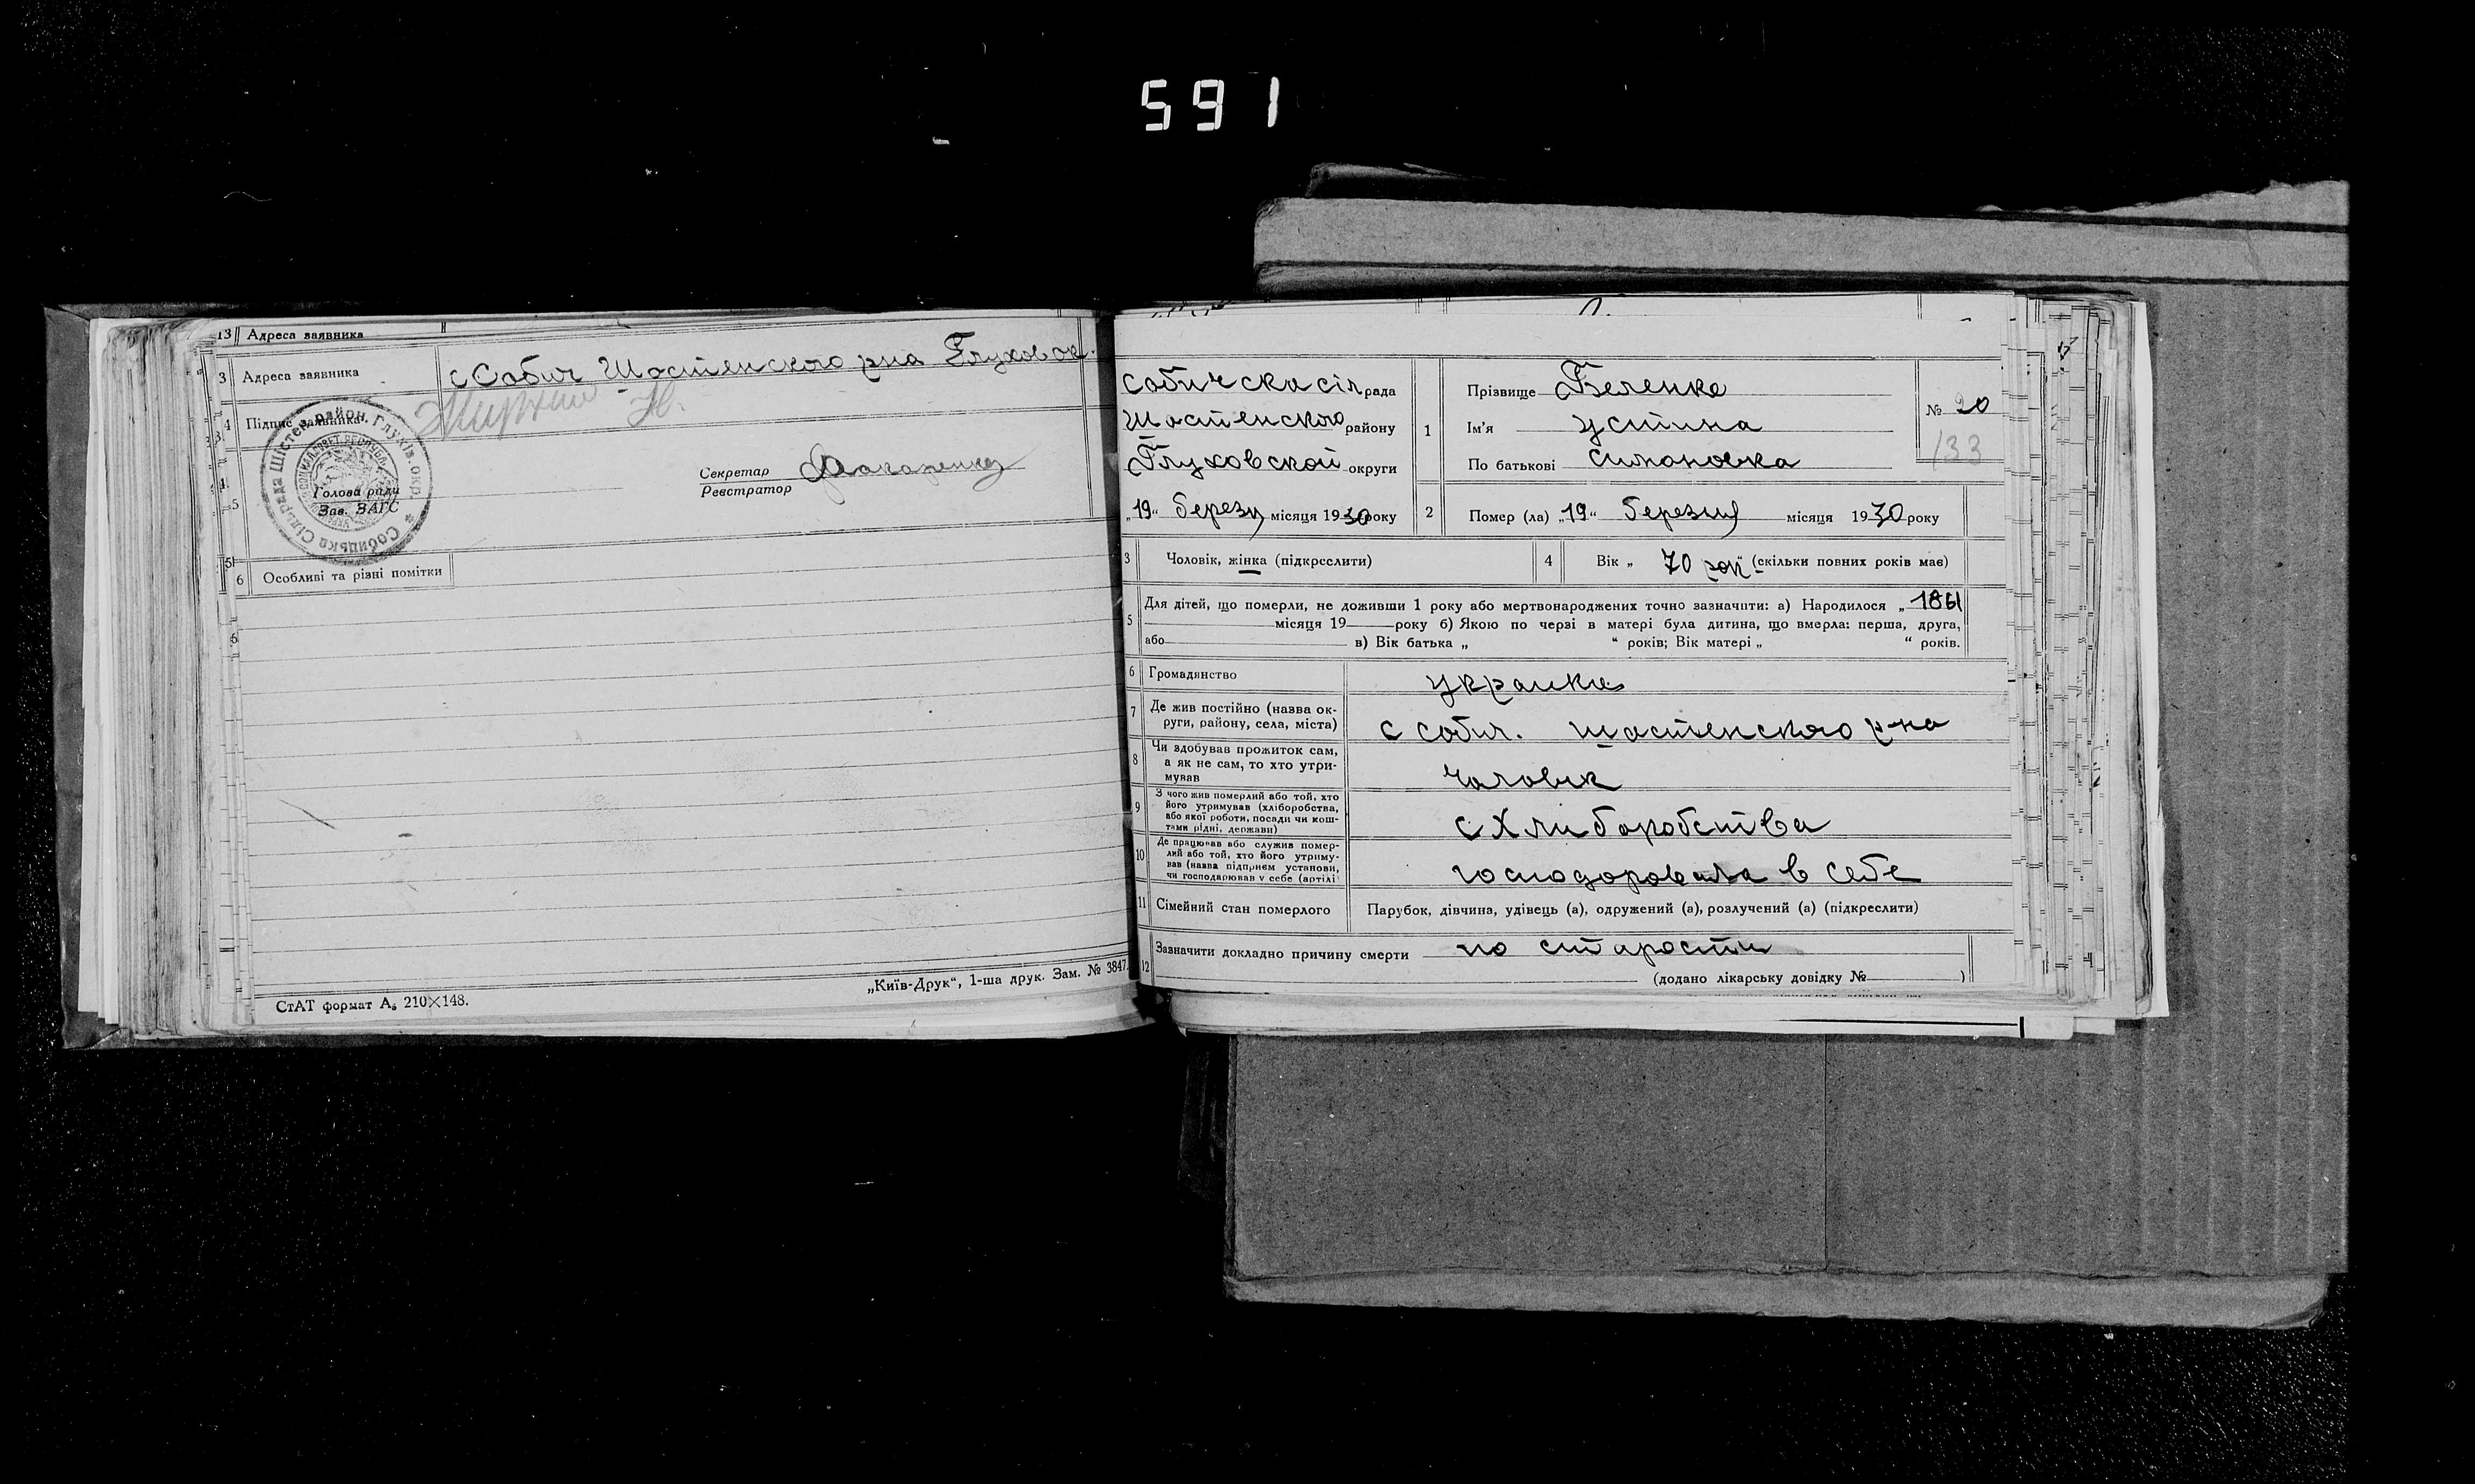 591
13 Адреса заявника
3 Адреса заявника с Собич Шостенского рна Глуховок.
4 Підпис заявника
Шістен. район. Глухів. окр. * Собицька Сільрада
Голова ради
Зав. ЗАГС
Секретар
Реєстратор
5
6 Особливі та різні помітки
„Київ-Друк“, 1-ша друк. Зам. № 3847.
СтАТ формат А₅ 210×148.
Собичска сіл рада
Шостенского району
Глуховской округи
„19“ березня місяця 1930 року
1 Прізвище Беленко
Ім'я Устина
По батькові Симоновка
№ 20
133
2 Помер (ла) „19“ березня місяця 1930 року
3 Чоловік, жінка (підкреслити)
4 Вік „ 70 рок“ (скільки повних років має)
5 Для дітей, що померли, не доживши 1 року або мертвонароджених точно зазначити: а) Народилося „ 1861
місяця 19 року б) Якою по черзі в матері була дитина, що вмерла: перша, друга,
або в) Вік батька „ “ років; Вік матері „ “ років.
6 Громадянство украинка
7 Де жив постійно (назва ок-
руги, району, села, міста) с собич. шостенского р-на
8 Чи здобував прожиток сам,
а як не сам, то хто утри-
мував чоловик
9 З чого жив померлий або той, хто
його утримував (хліборобства,
або якої роботи, посади чи кош-
тами рідні, держави) с Хлиборобства
10 Де працював або служив помер-
лий або той, хто його утриму-
вав (назва підприєм установи,
чи господарював у себе (артілі господоровала в себе
11 Сімейний стан померлого Парубок, дівчина, удівець (а), одружений (а), розлучений (а) (підкреслити)
12 Зазначити докладно причину смерти по старости
(додано лікарську довідку № )